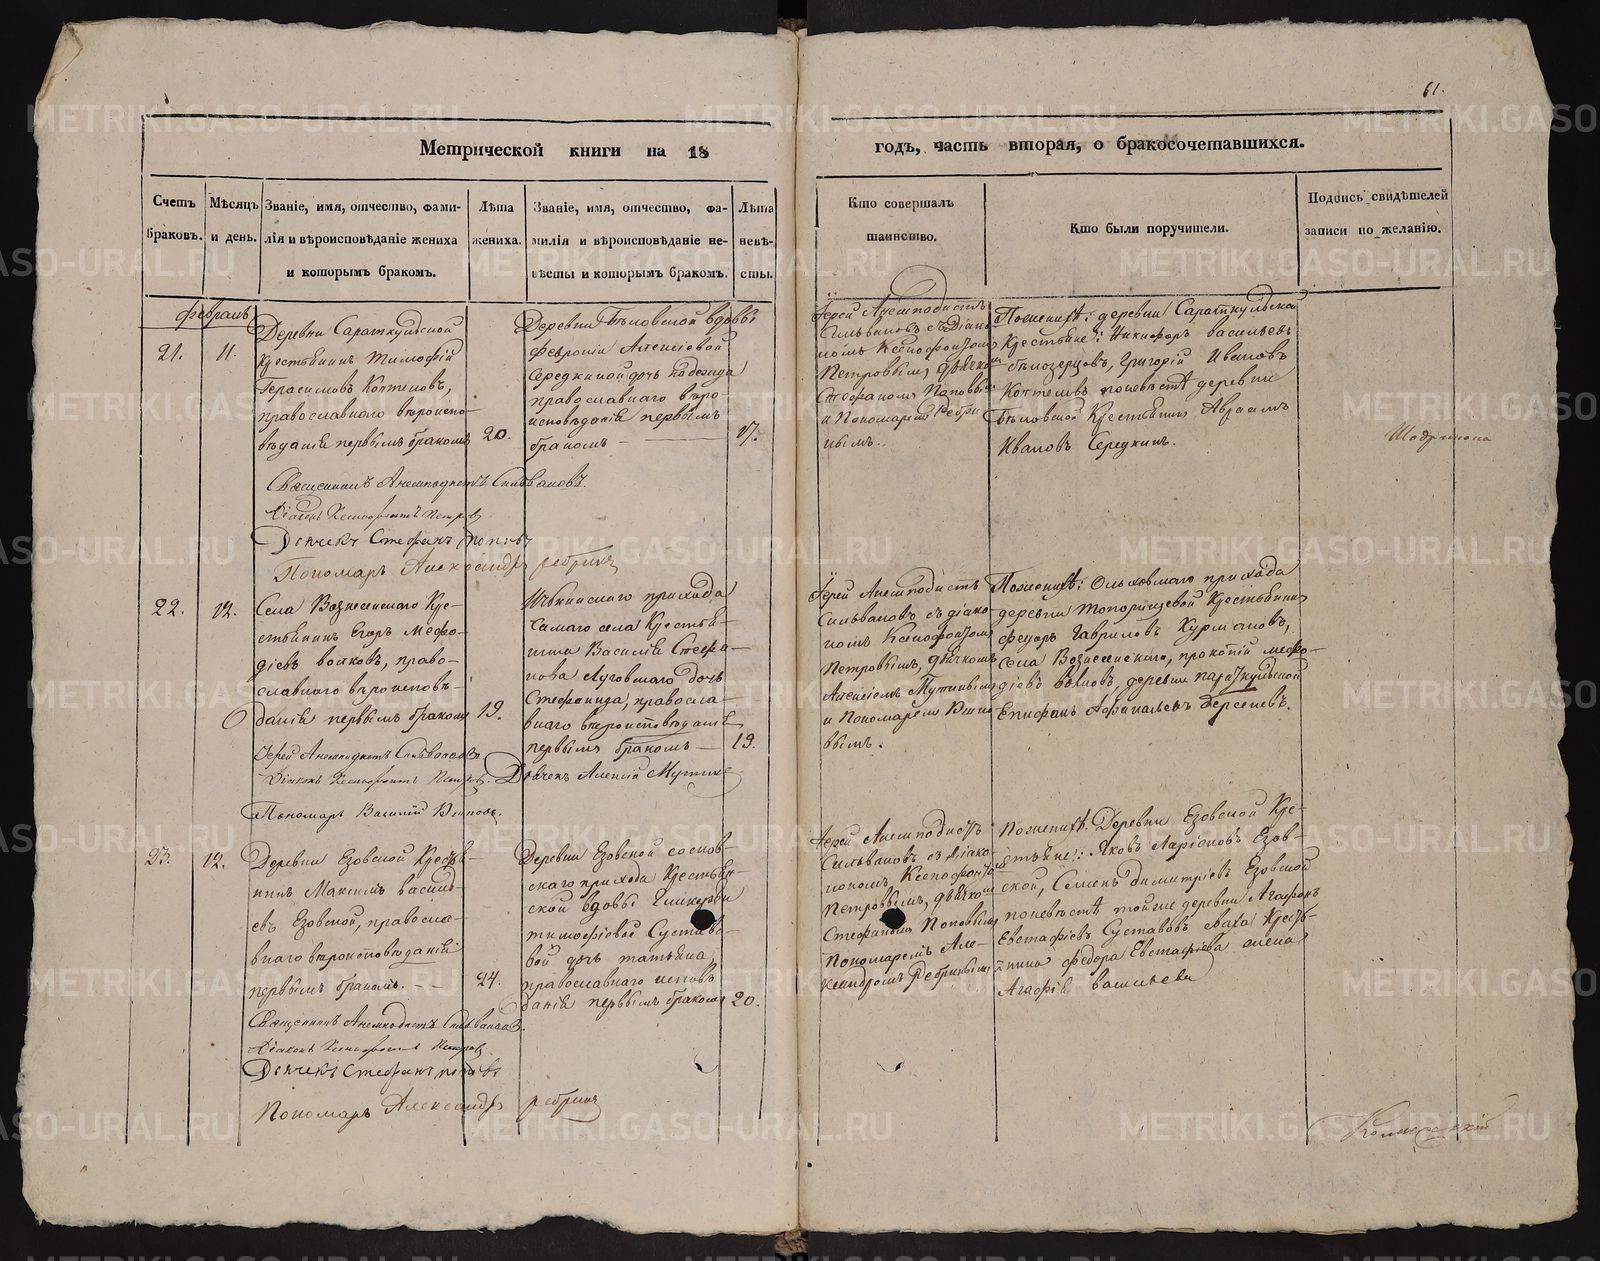 61.
Метрической книги на 18
годъ, часть вторая, о бракосочетавшихся.
Счетъ браковъ.
Мѣсяцъ и день.
Званіе, имя, отчество, фами-
лія и вѣроисповѣданіе жениха
и которымъ бракомъ.
Лѣта
жениха.
Званіе, имя, отчество, фа-
милія и вѣроисповѣданіе не-
вѣсты и которымъ бракомъ.
Лѣта
невѣ-
сты.
Кто совершалъ
таинство.
Кто были поручители.
Подпись свидѣтелей
записи по желанію.
февраль
21.
11.
Деревни
Крестьянинъ Тимофей
Герасимовъ Коптеловъ,
православнаго вѣроиспо-
вѣданія первымъ бракомъ
20.
Деревни Бѣловской вдовы
Февроніи Алексіевой
Середкиной дочь Надежда
православнаго вѣро-
исповѣданія первымъ
бракомъ
17.
Іерей Анемподистъ
Сильвановъ съ діако-
номъ Ксенофонтомъ
Петровымъ, дьячкомъ
Стефаномъ Поповымъ
и Пономаремъ Ребри-
нымъ.
деревни
Крестьяне: Никифоръ Васильевъ
Бѣлозерцовъ, Григорій Ивановъ
Коптеловъ, по невѣстѣ деревни
Бѣловской Крестьянинъ Авраамъ
Ивановъ Середкинъ.
Священникъ Анемподистъ Сильвановъ.
Діаконъ Ксенофонтъ Петровъ
Дячекъ Стефанъ Поповъ
Пономарь Александръ Ребринъ
22.
12.
Села Вознесенскаго Кре-
стьянинъ Егоръ Мефо-
діевъ Волковъ, право-
славнаго вѣроисповѣ-
данія первымъ бракомъ
19.
прихода
самаго села Крестья-
нина Василія Стефа-
нова Луговскаго дочь
Стефанида, правосла-
внаго вѣроисповѣданія
первымъ бракомъ
19.
Іерей Анемподистъ
Сильвановъ съ діако-
номъ Ксенофонтомъ
Петровымъ, дьячкомъ
Алексіемъ
и Пономаремъ
прихода
деревни Топорищевой Крестьянинъ
Федоръ Гавриловъ Курмановъ,
села Вознесенскаго, Прокопій Мефо-
діевъ Волковъ, деревни
Епифанъ
Іерей Анемподистъ Сильвановъ
Діаконъ Ксенофонтъ Петровъ.
Дьячекъ Алексій
Пономарь Василій
23.
12.
Деревни Езовской Кресть-
янинъ Максимъ Василь-
евъ Езовской, правосла-
внаго вѣроисповѣданія
первымъ бракомъ.
24.
Деревни Езовской
скаго прихода Крестьян-
ской вдовы Гликеріи
Тимофіевой Сустав-
вой дочь Татьяна,
православнаго исповѣ-
данія первымъ бракомъ
20.
Іерей Анемподистъ
Сильвановъ съ діако-
номъ Ксенофонтомъ
Петровымъ, дьячкомъ
Стефаномъ Поповымъ
Пономаремъ Але-
ксандромъ Ребринымъ
Деревни Езовской Кре-
стьяне: Яковъ Ларіоновъ Езов-
ской, Семенъ Димитріевъ Езовской
по невѣстѣ той же деревни Агафонъ
Евстафіевъ Суставовъ сваха Кресть-
янина Федора Евстафіева жена
Агафія Васильева
Священникъ Анемподистъ Сильвановъ.
Діаконъ Ксенофонтъ Петровъ
Дячекъ Стефанъ Поповъ
Пономарь Александръ Ребринъ
METRIKI.GASO-URAL.RU